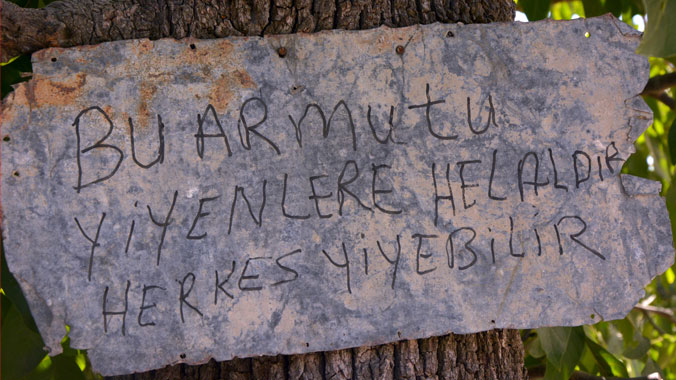 BU ARMUTU
YİYENLERE HELALDIR
HERKES YİYEBİLİR